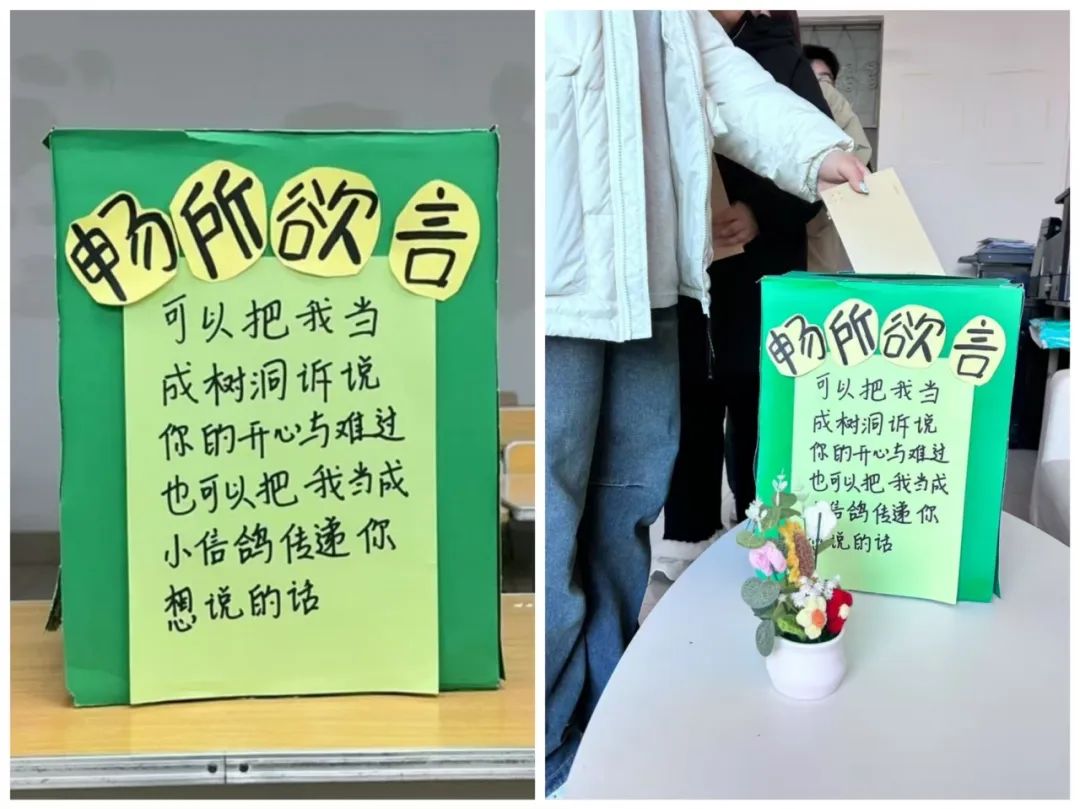 畅所欲言
可以把我当
成树洞诉说
你的开心与难过
也可以把我当成
小信鸽传递你
想说的话
畅所欲言
可以把我当
成树洞诉说
你的开心与难过
也可以把我当成
信鸽传递你
说的话